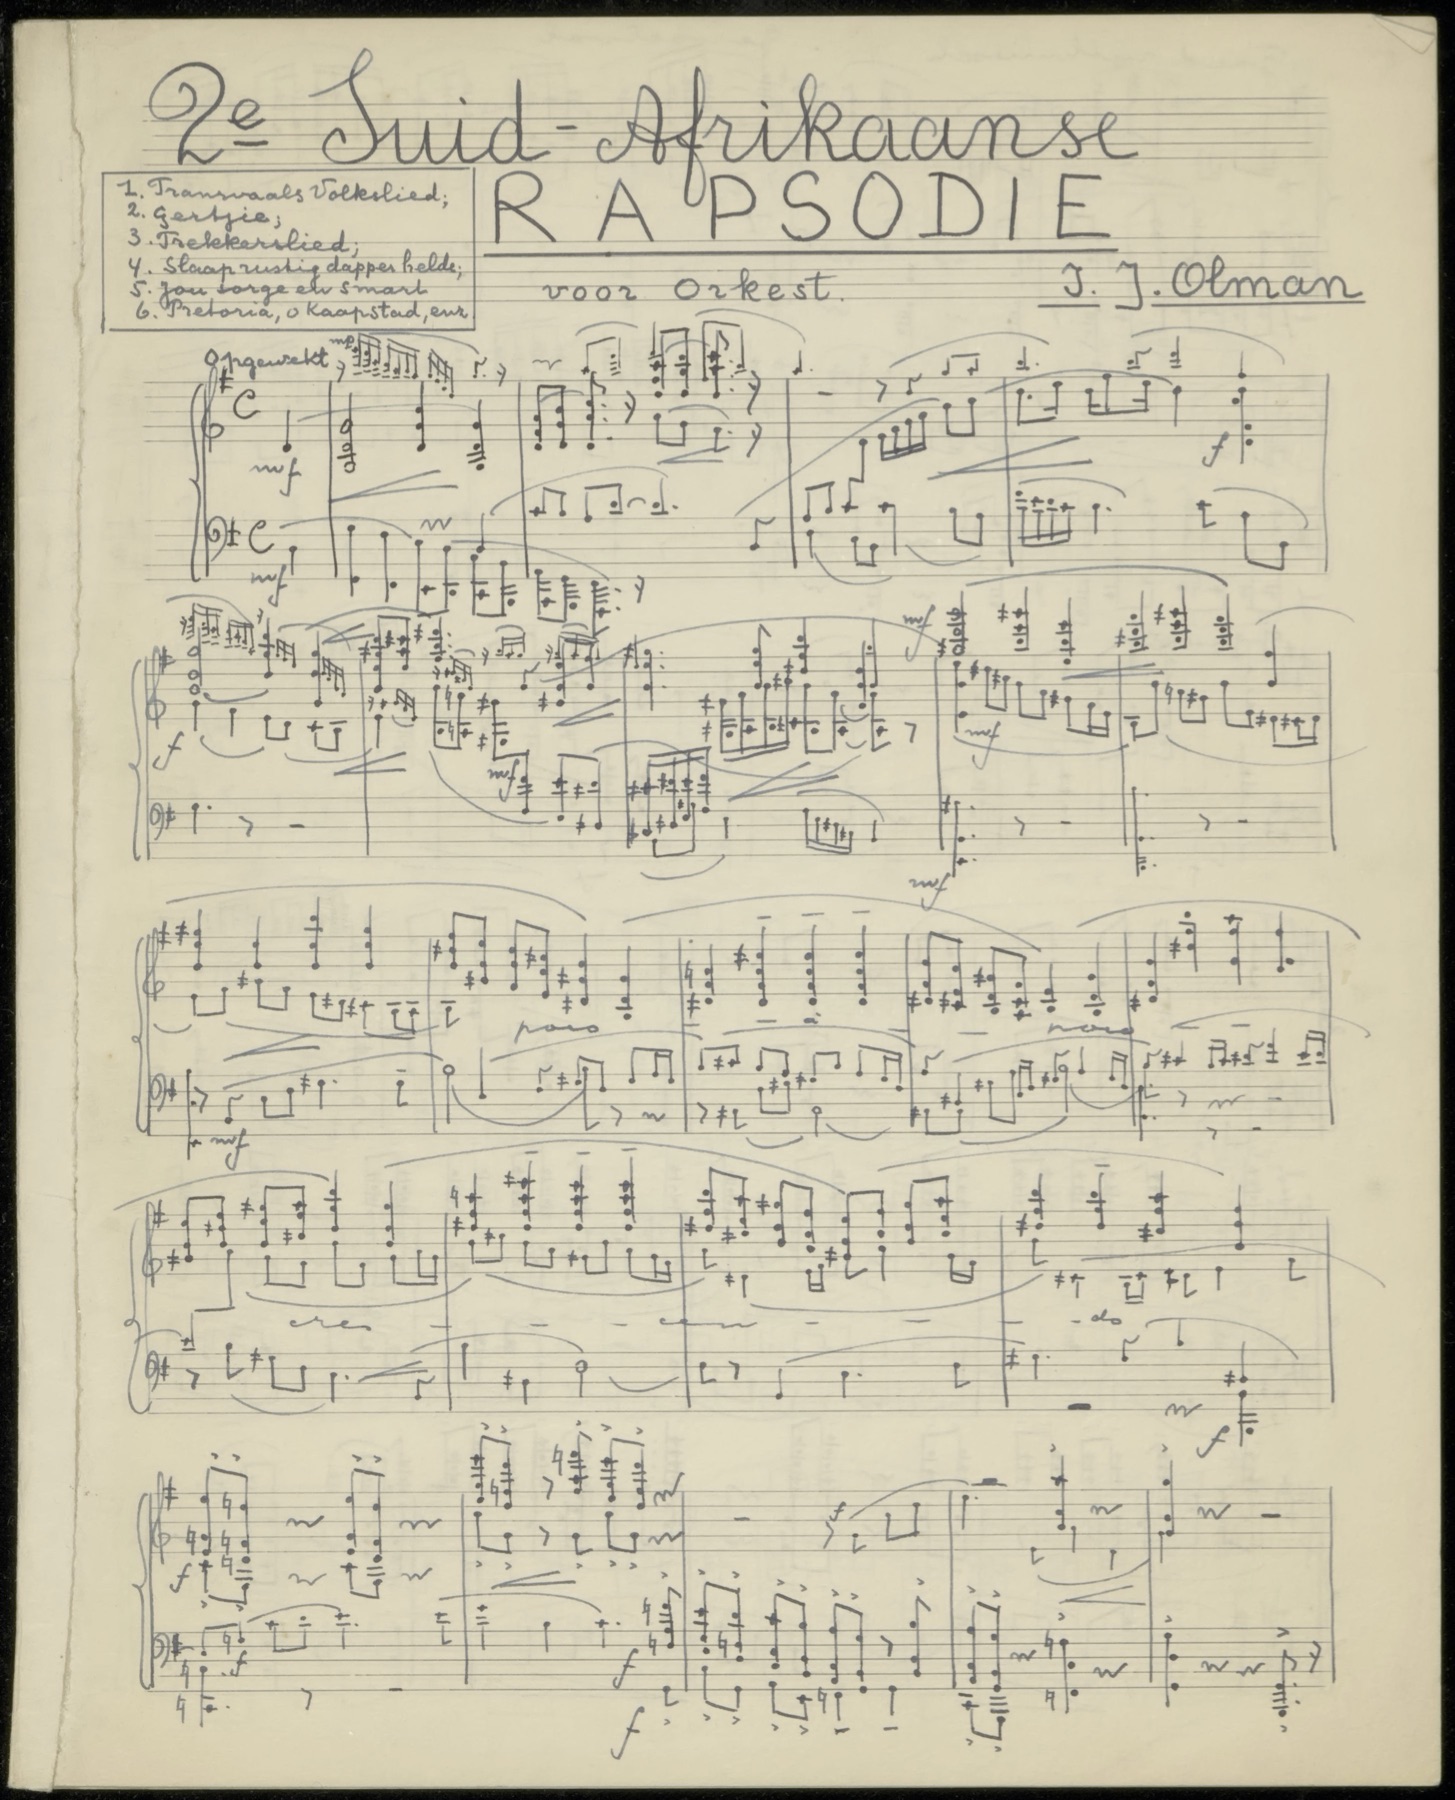 2e Suid-Afrikaanse
RAPSODIE
voor Orkest.
I. J. Olman
1. Transvaals Volkslied;
2. Gertjie;
3. Trekkerslied;
4. Slaap rustig dapper helde;
5. Jou sorge en smart
6. Pretoria, o Kaapstad, enz
Opgewekt
mp
mf
f
mf
mf
f
mf
mf
mf
poco
poco
mf
cres - - cen - - - do
f
f
f
f
f
f